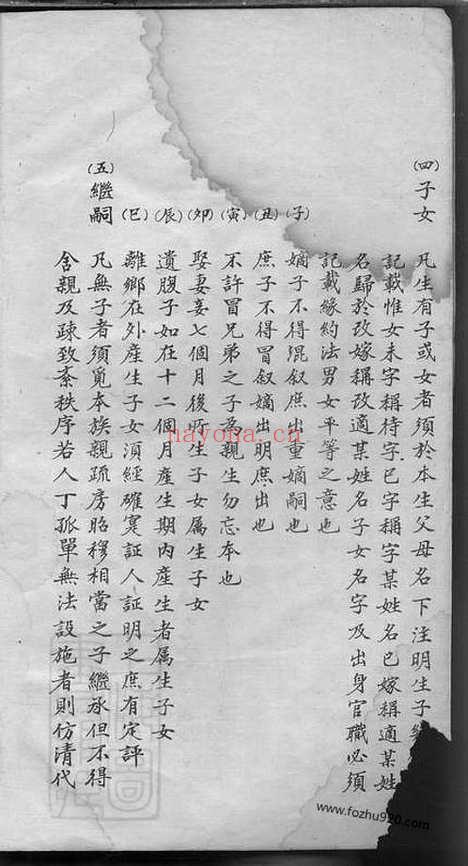 (四)子女 凡生有子或女者須於本生父母名下注明生子
記載惟女未字稱待字已字稱字某姓名已嫁稱適某姓
名歸於改嫁稱改適某姓名子女名字及出身官職必須
記載緣約法男女平等之意也
(子)嫡子不得混叙庶出重嫡嗣也
(丑)庶子不得冒叙嫡出明庶出也
(寅)不許冒兄弟之子為親生勿忘本也
(卯)娶妻妾七個月後所生子女属生子女
(辰)遺腹子如在十二個月產生期内產生者属生子女
(巳)離鄉在外產生子女須經確寔証人証明之庶有定評
(五)繼嗣 凡無子者須覓本族親疏房昭穆相當之子繼承但不得
舍親及疎致紊秩序若人丁孤單無法設施者則仿清代
nayona.cn
www.fozhu920.com